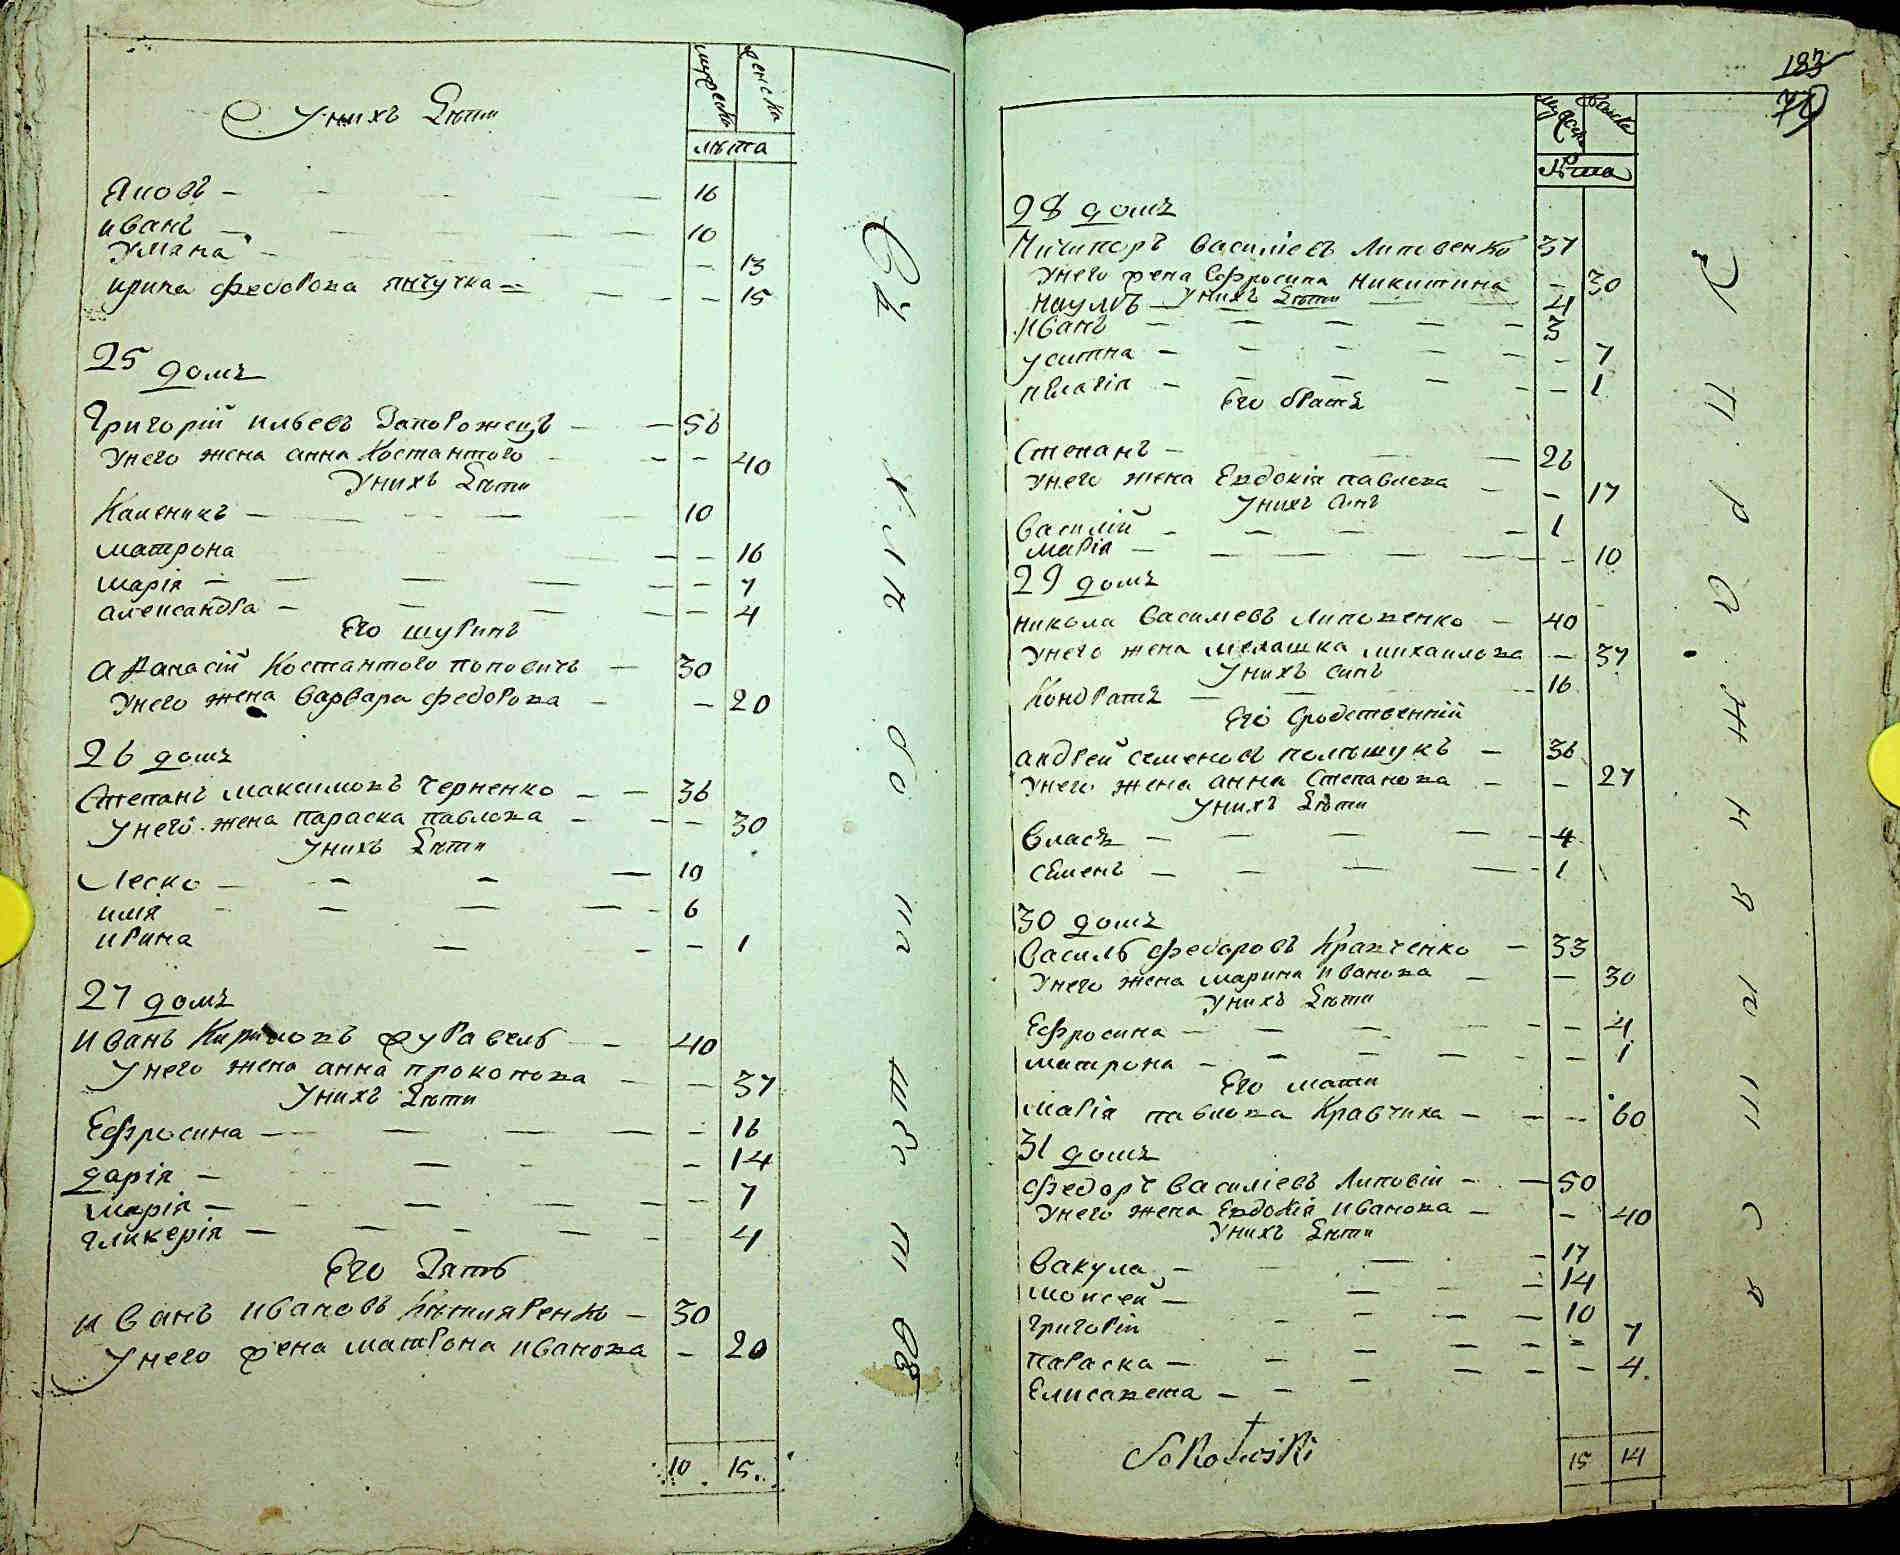 мужеска женска
Унихъ Дѣти
лѣта
Яковъ 16
иванъ 10
Умана 13
ирина федорова 15
25 домъ
Григорій ильевъ Запорожецъ 56
Унего жена анна Костантого 40
Унихъ Дѣти
Каленикъ 10
матрона 16
марія 7
александра 4
Его шуринъ
Афанасій Костантого поповичъ 30
Унего жена варвара федорова 20
26 домъ
Степанъ максимовъ Черненко 36
Унего жена параска павлова 30
Унихъ Дѣти
Леско 10
илия 6
ирина 1
27 домъ
иванъ Кириловъ журавель 40
Унего жена анна прокопова 37
Унихъ Дѣти
Ефросина 16
дарія 14
марія 7
гликерія 4
Его Зять
иванъ ивановъ 30
Унего жена матрона иванова 20
10 15
183
79
мужеска женска
лѣта
28 домъ
Ничипоръ василіевъ Липовенко 37
Унего жена Ефросина никитина 30
Унихъ Дѣти
наумъ 4
иванъ 3
устина 7
пелагія 1
Его братъ
Степанъ 26
Унего жена Евдокія павлова 17
Унихъ синъ
василій 1
марія 10
29 домъ
никола василіевъ Липовенко 40
Унего жена мелашка михаилова 37
Унихъ синъ
Кондратъ 16
Его Сродственній
андрей семеновъ полѣщукъ 36
Унего жена анна Степанова 27
Унихъ Дѣти
власъ 4
семенъ 1
30 домъ
василь федоровъ Кравченко 33
Унего жена марина иванова 30
Унихъ Дѣти
Ефросина 4
матрона 1
Его мати
марія павлова Кравчиха 60
31 домъ
федоръ василіевъ Липовій 50
Унего жена Евдокія иванова 40
Унихъ Дѣти
вакула 17
моисей 14
григорій 10
параска 7
Елисавета 4
15 14